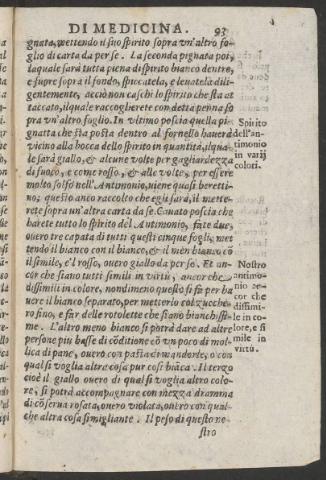 DI MEDICINA. 93
gnata, mettendo il suo spirito sopra vn'altro fo-
glio di carta da per se. La seconda pignata poi,
laquale sarà tutta piena di spirito bianco dentro,
e supre sopra il fondo, spiccatela, e leuatela dili-
gentemente, acciò non caschi lo spirito che sta at
taccato, ilquale raccoglierete con detta penna so
pra vn'altro foglio. In vltimo poscia quella pi-
gnatta che sta posta dentro al fornello hauerà
vicino alla bocca dello spirito in quantità, ilqua
le sarà giallo, & alcune volte per gagliardezza
di fuoco, e come rosso, & alle volte, per essere
molto solfo nell'Antimonio, viene quasi beretti-
no; questo anco raccolto che egli sarà, il mette-
rete sopra un'altra carta da se. Cauato poscia che
harete tutto lo spirito del Antimonio, fate due,
ouero tre capate di tutti questi cinque fogli, met
tendo il bianco con il bianco, & il men bianco cō
il simile, e'l rosso, ouero giallo da per se. Et an-
cor che siano tutti simili in virtù, ancor che
dissimili in colore, nondimeno questo si fà per ha
uere il bianco separato, per metterlo col zucche-
ro fino, e far delle rotolette che siano bianchissi-
me. L'altro meno bianco si potrà dare ad altre
persone più basse di cōditione cō vn poco di mol-
lica di pane, ouero con pasta di mandorle, o con
qual si voglia altra cosa pur cosi biāca. Il terzo
cioè il giallo ouero di qual si voglia altro colo-
re, si potrà accompagnare con mezza dramma
di cōserua rosata, ouero violata, ouero con qual-
che altra cosa simigliante. Il peso di questo no-
stro
Spirito
dell'an-
timonio
in varij
colori.
Nostro
antimo-
nio an-
cor che
dissimi-
le in co-
lore, e si
mile in
virtù.